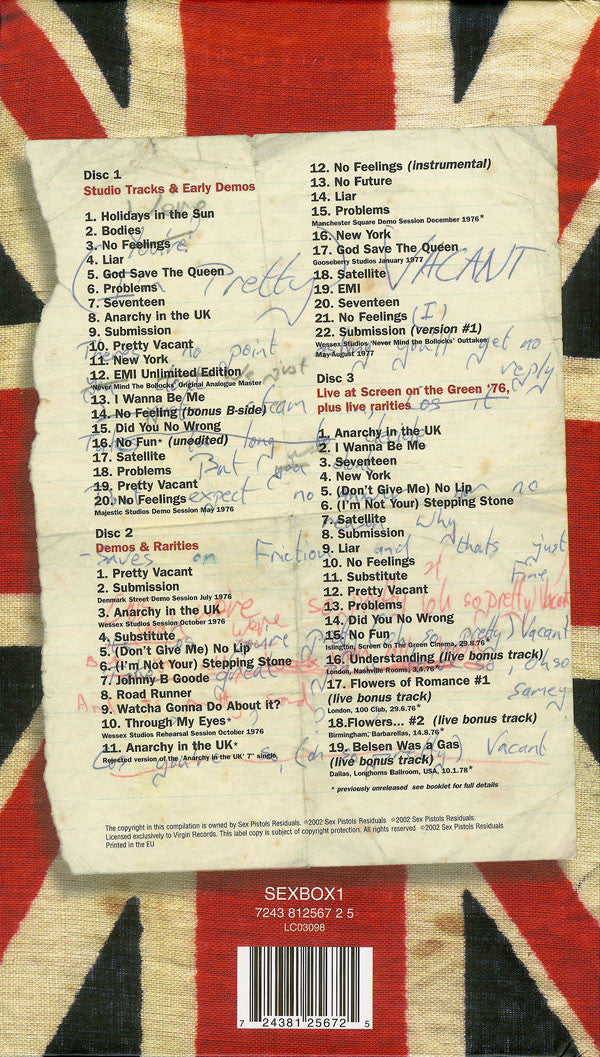 Disc 1
Studio Tracks & Early Demos
1. Holidays in the Sun
2. Bodies
3. No Feelings
4. Liar
5. God Save The Queen
6. Problems
7. Seventeen
8. Anarchy in the UK
9. Submission
10. Pretty Vacant
11. New York
12. EMI Unlimited Edition
'Never Mind The Bollocks' Original Analogue Master
13. I Wanna Be Me
14. No Feeling (bonus B-side)
15. Did You No Wrong
16. No Fun* (unedited)
17. Satellite
18. Problems
19. Pretty Vacant
20. No Feelings
Majestic Studios Demo Session May 1976
Disc 2
Demos & Rarities
1. Pretty Vacant
2. Submission
Denmark Street Demo Session July 1976
3. Anarchy in the UK
Wessex Studios Session October 1976
4. Substitute
5. (Don't Give Me) No Lip
6. (I'm Not Your) Stepping Stone
7. Johnny B Goode
8. Road Runner
9. Watcha Gonna Do About it?
10. Through My Eyes*
Wessex Studios Rehearsal Session October 1976
11. Anarchy in the UK*
Rejected version of the 'Anarchy in the UK' 7" single
12. No Feelings (instrumental)
13. No Future
14. Liar
15. Problems
Manchester Square Demo Session December 1976*
16. New York
17. God Save The Queen
Gooseberry Studios January 1977
18. Satellite
19. EMI
20. Seventeen
21. No Feelings
22. Submission (version #1)
Wessex Studios 'Never Mind the Bollocks' Outtakes
May-August 1977
Disc 3
Live at Screen on the Green '76,
plus live rarities
1. Anarchy in the UK
2. I Wanna Be Me
3. Seventeen
4. New York
5. (Don't Give Me) No Lip
6. (I'm Not Your) Stepping Stone
7. Satellite
8. Submission
9. Liar
10. No Feelings
11. Substitute
12. Pretty Vacant
13. Problems
14. Did You No Wrong
15. No Fun
Islington, Screen On The Green Cinema, 29.8.76*
16. Understanding (live bonus track)
London, Nashville Rooms, 3.4.76*
17. Flowers of Romance #1
(live bonus track)
London, 100 Club, 29.6.76*
18.Flowers... #2 (live bonus track)
Birmingham, Barbarellas, 14.8.76*
19. Belsen Was a Gas
(live bonus track)
Dallas, Longhorns Ballroom, USA, 10.1.78*
* previously unreleased see booklet for full details
You're
(I'm Pretty) VACANT
(I)
Theres no point asking you'll get no
reply
just
But you
expect no
reason Why
- Saves on Friction and thats just
Fine
oh so pretty) Vacant
so pretty) Vacant
oh so
Samey
Vacant
The copyright in this compilation is owned by Sex Pistols Residuals ℗2002 Sex Pistols Residuals ©2002 Sex Pistols Residuals.
Licensed exclusively to Virgin Records. This label copy is subject of copyright protection. All rights reserved ©2002 Sex Pistols Residuals
Printed in the EU
SEXBOX1
7243 812567 2 5
LC03098
7 24381 25672 5